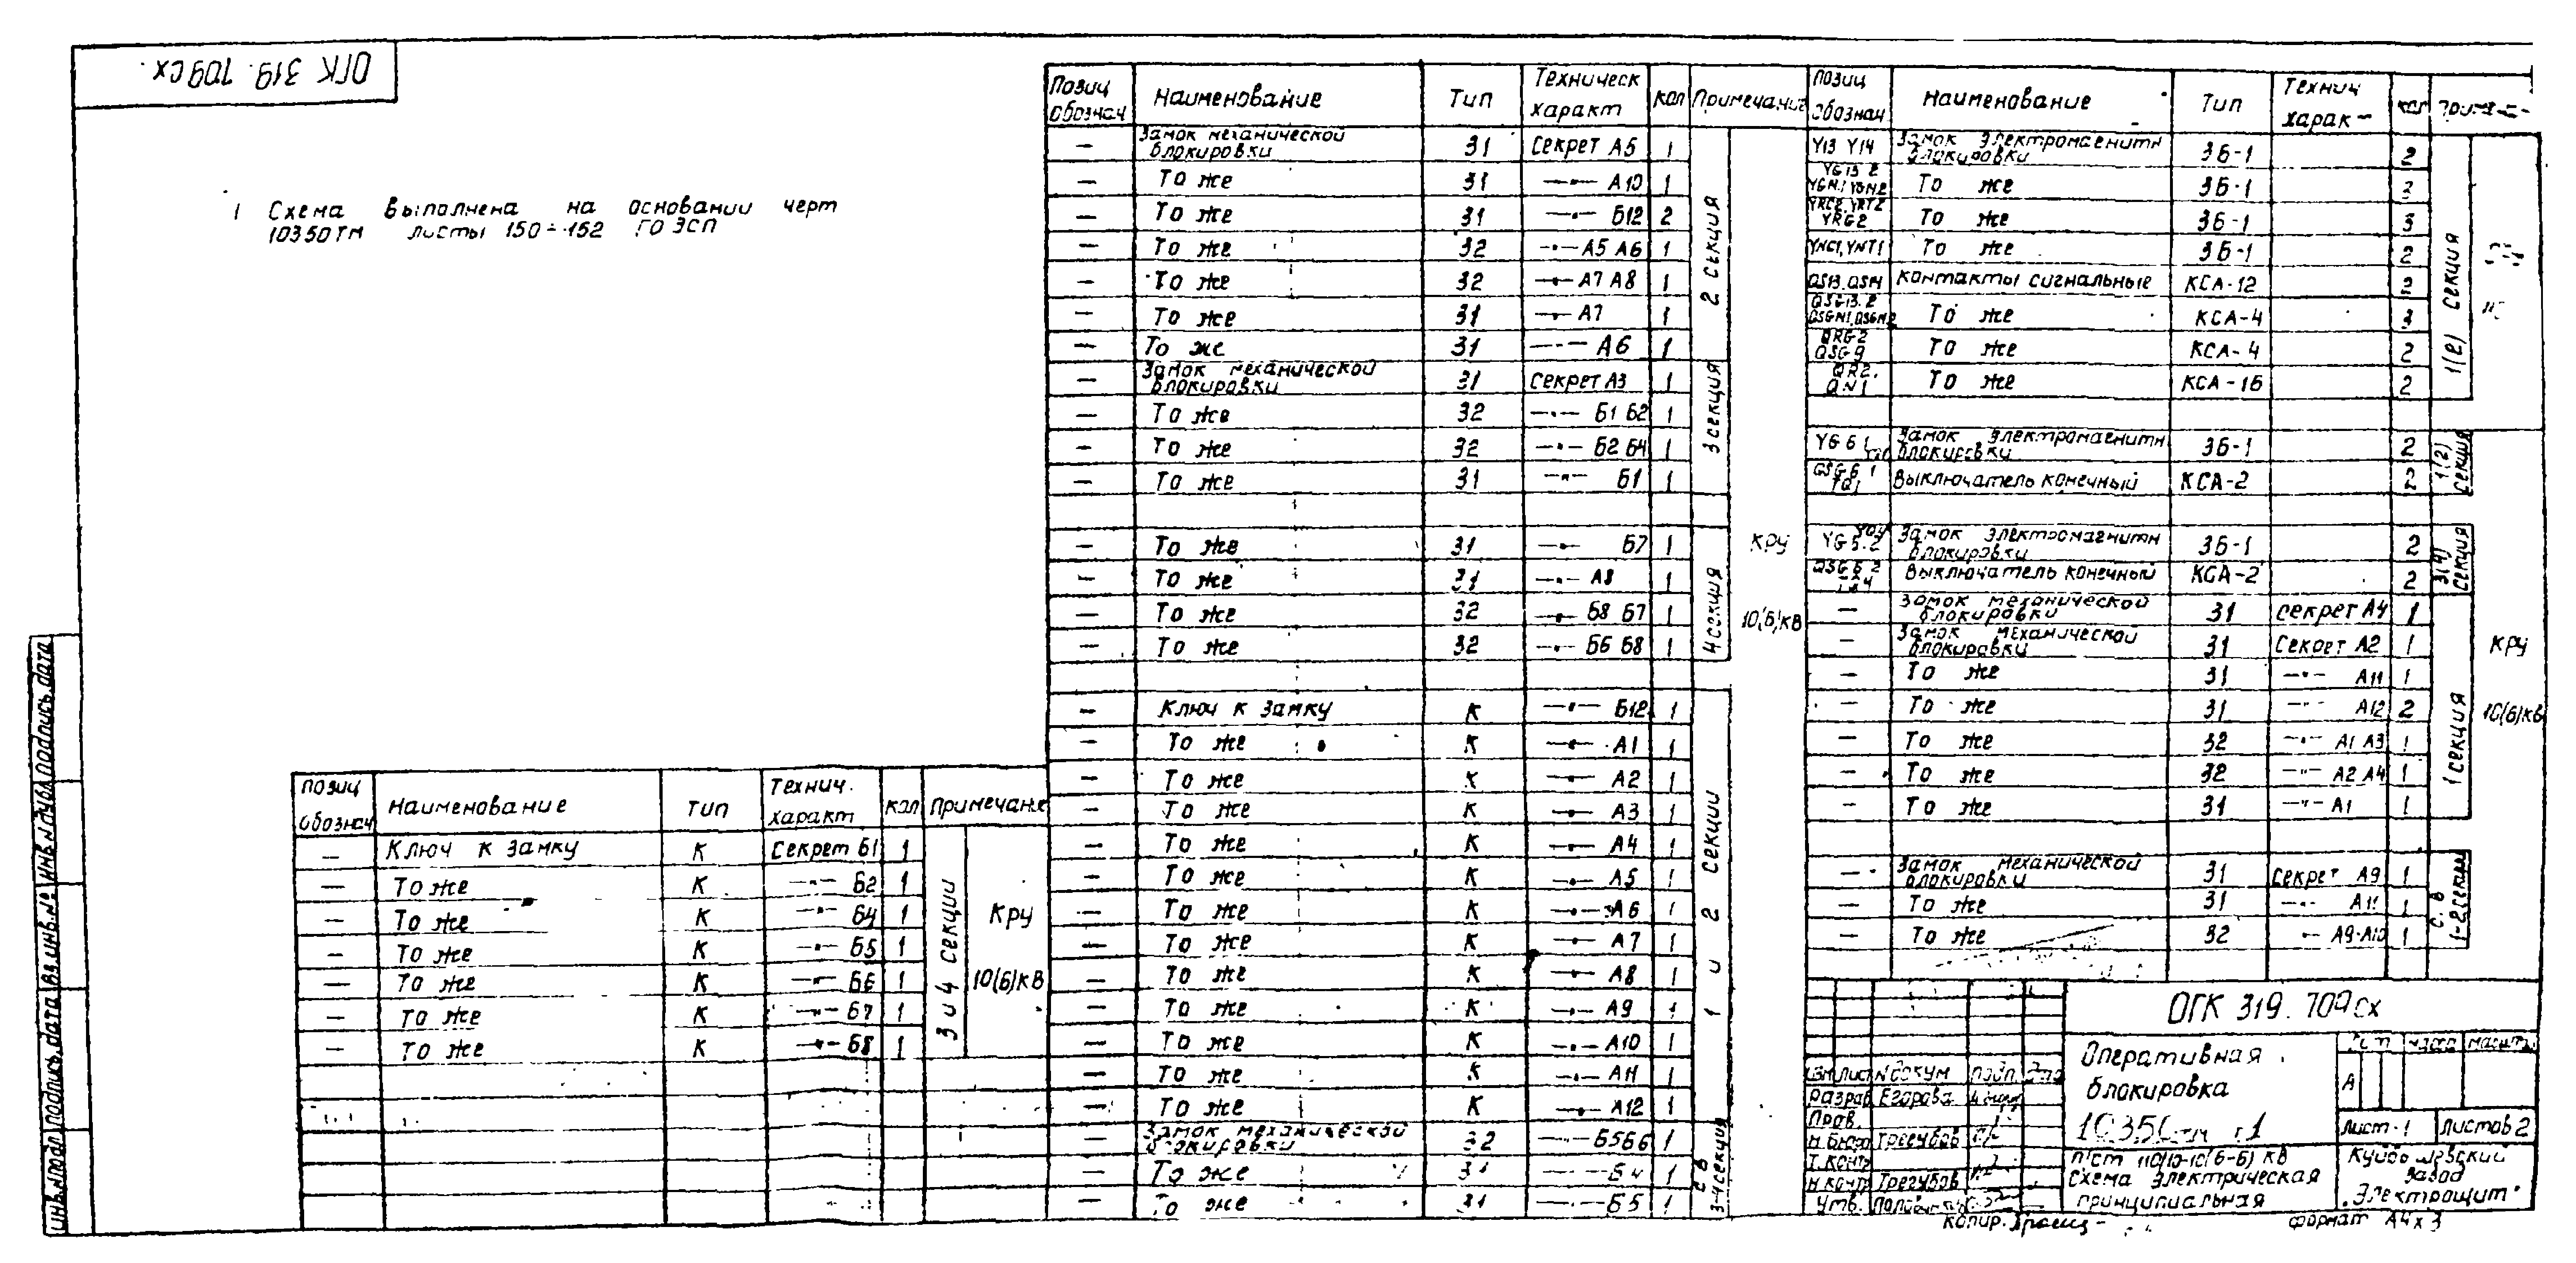 ОГК 319. 709сх.
1 Схема выполнена на основании черт
10350ТМ листы 150÷152 ГО ЭСП
Позиц обознач Наименование Тип Технич. характ кол Примечание
— Ключ к замку К Секрет Б1 1
— То же К —"— Б2 1
— То же К —"— Б4 1
— То же К —"— Б5 1
— То же К —"— Б6 1
— То же К —"— Б7 1
— То же К —"— Б8 1
3 и 4 секции
КРУ
10(6)кВ
Позиц обознач Наименование Тип Техническ характ кол Примечание
— Замок механической блокировки З1 Секрет А5 1
— То же З1 —"— А10 1
— То же З1 —"— Б12 2
— То же З2 —"— А5 А6 1
— То же З2 —"— А7 А8 1
— То же З1 —"— А7 1
— То же З1 —"— А6 1
2 секция
— Замок механической блокировки З1 Секрет А3 1
— То же З2 —"— Б1 Б2 1
— То же З2 —"— Б2 Б4 1
— То же З1 —"— Б1 1
3 секция
— То же З1 —"— Б7 1
— То же З1 —"— А8 1
— То же З2 —"— Б8 Б7 1
— То же З2 —"— Б6 Б8 1
4 секция
КРУ
10(6)кВ
— Ключ к замку К —"— Б12 1
— То же К —"— А1 1
— То же К —"— А2 1
— То же К —"— А3 1
— То же К —"— А4 1
— То же К —"— А5 1
— То же К —"— А6 1
— То же К —"— А7 1
— То же К —"— А8 1
— То же К —"— А9 1
— То же К —"— А10 1
— То же К —"— А11 1
— То же К —"— А12 1
1 и 2 секции
— Замок механической блокировки З2 —"— Б5Б6 1
— То же З1 —"— Б4 1
— То же З1 —"— Б5 1
С В
3-4секция
Позиц обознач Наименование Тип Технич харак- кол
Y13 Y14 Замок электромагнитн блокировки ЗБ-1 2
YG13 2 YGN.1 YGN2 То же ЗБ-1
YRC2, YRT2 YRG2 То же ЗБ-1 3
YNC1, YNT1 То же ЗБ-1 2
QS13. QS14 Контакты сигнальные КСА-12 2
QSG13.2 QSGN1, QSGN2 То же КСА-4 3
QRG-2 QSG9 То же КСА-4 2
QR2. QN1 То же КСА-16 2
1(2) секция
YG6 1 Замок электромагнитн блокировки ЗБ-1 2
QSG6 1 Выключатель конечный КСА-2 2
1(2) секция
Замок электромагнитн блокировки ЗБ-1 2
Выключатель конечный КСА-2 2
3(4) секция
— Замок механической блокировки З1 Секрет А4 1
— Замок механической блокировки З1 Секрет А2 1
— То же З1 —"— А11 1
— То же З1 —"— А12 2
— То же З2 —"— А1 А3 1
— То же З2 —"— А2 А4 1
— То же З1 —"— А1 1
1 секция
КРУ
10(6)кВ
— Замок механической блокировки З1 Секрет А9 1
— То же З1 —"— А11 1
— То же З2 —"— А9-А10 1
С. В
1-2секции
ОГК 319. 709сх
Оперативная
блокировка
Лит масса масшт.
А
Лист 1 Листов 2
п/ст 110/10-10(6-6) кВ
Схема электрическая
принципиальная
Куйбышевский
завод
„Электрощит"
Изм Лист N докум Подп. Дата
Разраб Егорова
Пров.
Н.бюро Трегубов
Т.контр
Н.контр Трегубов
Утв.
Копир.
Формат А4х3
Инв.№подл Подпись.дата Вз.инв.№ Инв.№дубл Подпись.дата